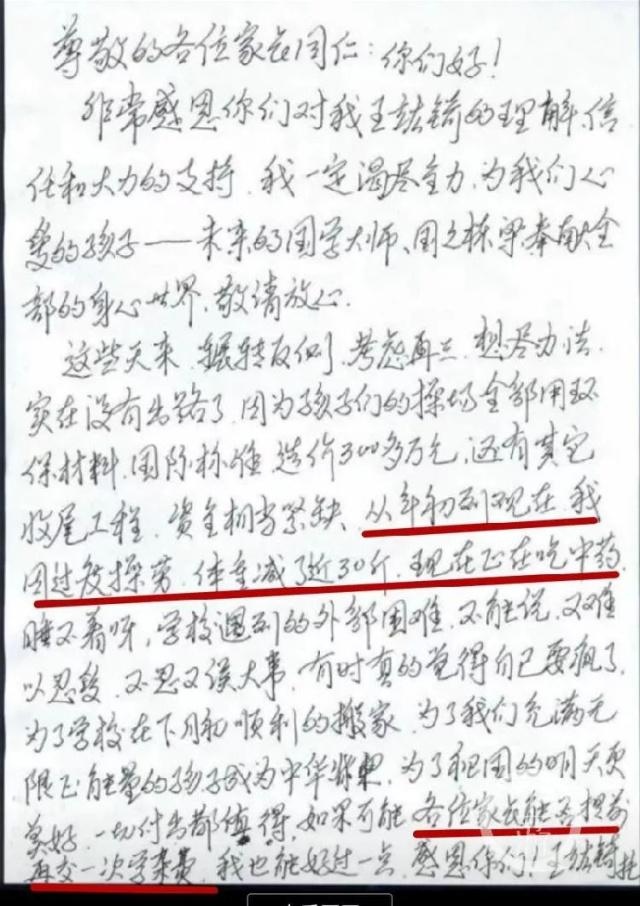 尊敬的各位家长同仁：你们好！
非常感恩你们对我王喆锜的理解、信
任和大力的支持，我一定竭尽全力，为我们心
爱的孩子——未来的国学大师、国之栋梁奉献全
部的身心世界，敬请放心．
这些天来，辗转反侧，考虑再三，想尽办法，
实在没有出路了，因为孩子们的操场全部用环
保材料，国际标准，造价300多万元，还有其它
收尾工程，资金相当紧缺，从年初到现在，我
因过度操劳，体重减了近30斤，现在正在吃中药，
睡不着呀，学校遇到的外部困难，又能说，又难
以忍受，不忍又误大事，有时真的觉得自己要疯了，
为了学校在下月初顺利的搬家，为了我们充满无
限正能量的孩子成为中华，为了祖国的明天更
美好，一切付出都值得，如果可能，各位家长能否提前
再交一次学杂费，我也能好过一点，感恩你们！王喆锜